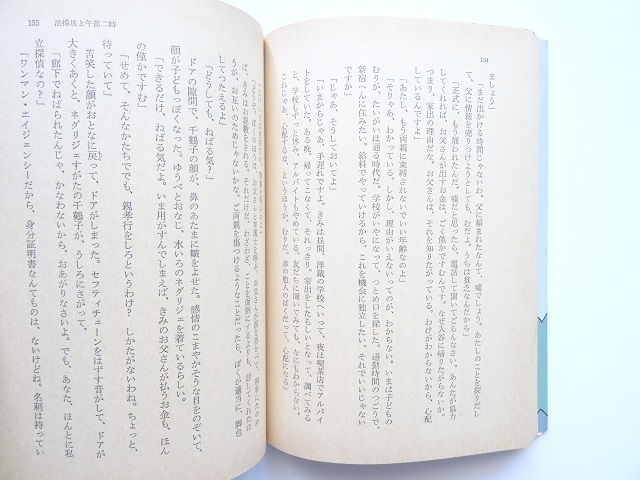 154
ましょう」
「まだ出かける時間じゃないわ。父に頼まれたなんて、嘘でしょう。あたしのことを探りだし
て、父に情報を売りつけようとしても、むだよ。うちは貧乏なんだから」
「正式に、もう雇われたんだ。嘘だと思ったら、電話して聞いてごらんなさい。あんたが協力
してくれれば、お父さんが出すお金は、ごく僅かですむんです。なぜ入谷に帰りたがらないか。
つまり、家出の理由だな。お父さんは、それを知りたがっている。わけがわからないから、心配
しているんですよ」
「あたし、もう両親に束縛されないでいい年齢なのよ」
「そりゃあ、わかっている。しかし、理由がいえないってのが、わからない。いまは子どもの
むりが、たいがいは通る時代だ。学校がいやになって、つとめ口を探した。通勤時間のつごうで、
新宿へんに住みたい。給料でやっていけるから、これを機会に独立したい。それでいいじゃない
ですか」
「じゃあ、そうしておいてよ」
「いまからじゃあ、手遅れですよ。きみは昼間、洋裁の学校へいって、夜は喫茶店でアルバイ
トをしていた。ある晩、帰ってこなくて、それっきり。家出をしたらしいとなって、調べてみる
と、学校もずっと休み、アルバイトもやめている。友だちに聞いてみても、なにもわからない。
これじゃあ、心配するな、というほうが、むりだ。赤の他人のぼくだって、心配になる」
155　油揚坂上午前二時
してつたえるよ」
「どうしても、ねばる気?」
ドアの隙間で、千鶴子の顔が、鼻のあたまに皺をよせた。感情のこまやかそうな目をのぞいて、
顔が子どもっぽくなった。ゆうべとおなじ、水いろのネグリジェを着ているらしい。
「できるだけ、ねばる気だよ。いま用がすんでしまえば、きみのお父さんが払うお金も、ほん
の僅かですむ」
「せめて、そんなかたちででも、親孝行をしろというわけ? しかたがないわね。ちょっと、
待っていて」
苦笑した顔がおとなに戻って、ドアがしまった。セフティチェーンをはずす音がして、ドアが
大きくあくと、ネグリジェすがたの千鶴子が、うしろにさがって、
「廊下でねばられたんじゃ、かなわないから、おあがりなさいよ。でも、あなた、ほんとに私
立探偵なの?」
「ワンマン・エイジェンシーだから、身分証明書なんてものは、ないけどね。名刺は持ってい